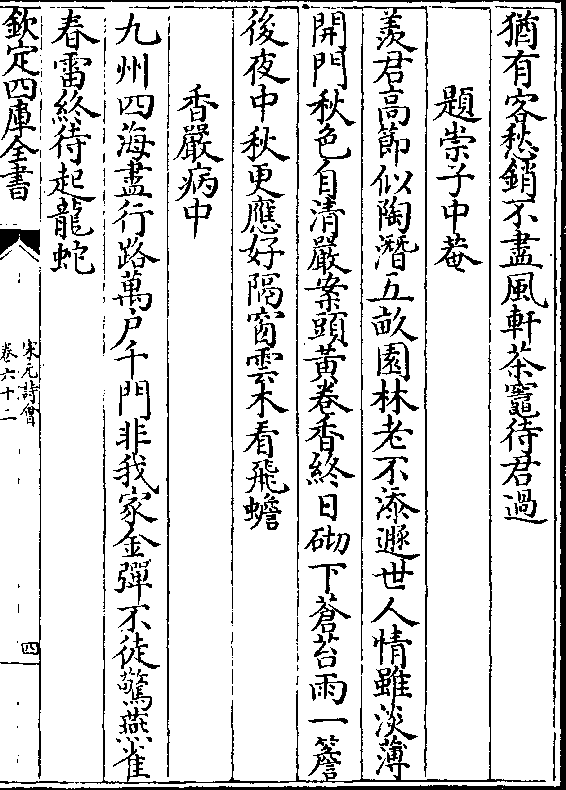 猶有客愁銷不盡風軒茶竈待君過
題崇子中菴
羨君高節似陶潛五畝園林老不添遯世人情雖淡薄
開門秋色自清嚴案頭黃卷香終日砌下蒼苔雨一簷
後夜中秋更應好隔窗雲木看飛蟾
香嚴病中
九州四海盡行路萬戶千門非我家金彈不徒驚燕雀
春雷終待起龍蛇
欽定四庫全書
宋元詩會
卷六十二
四